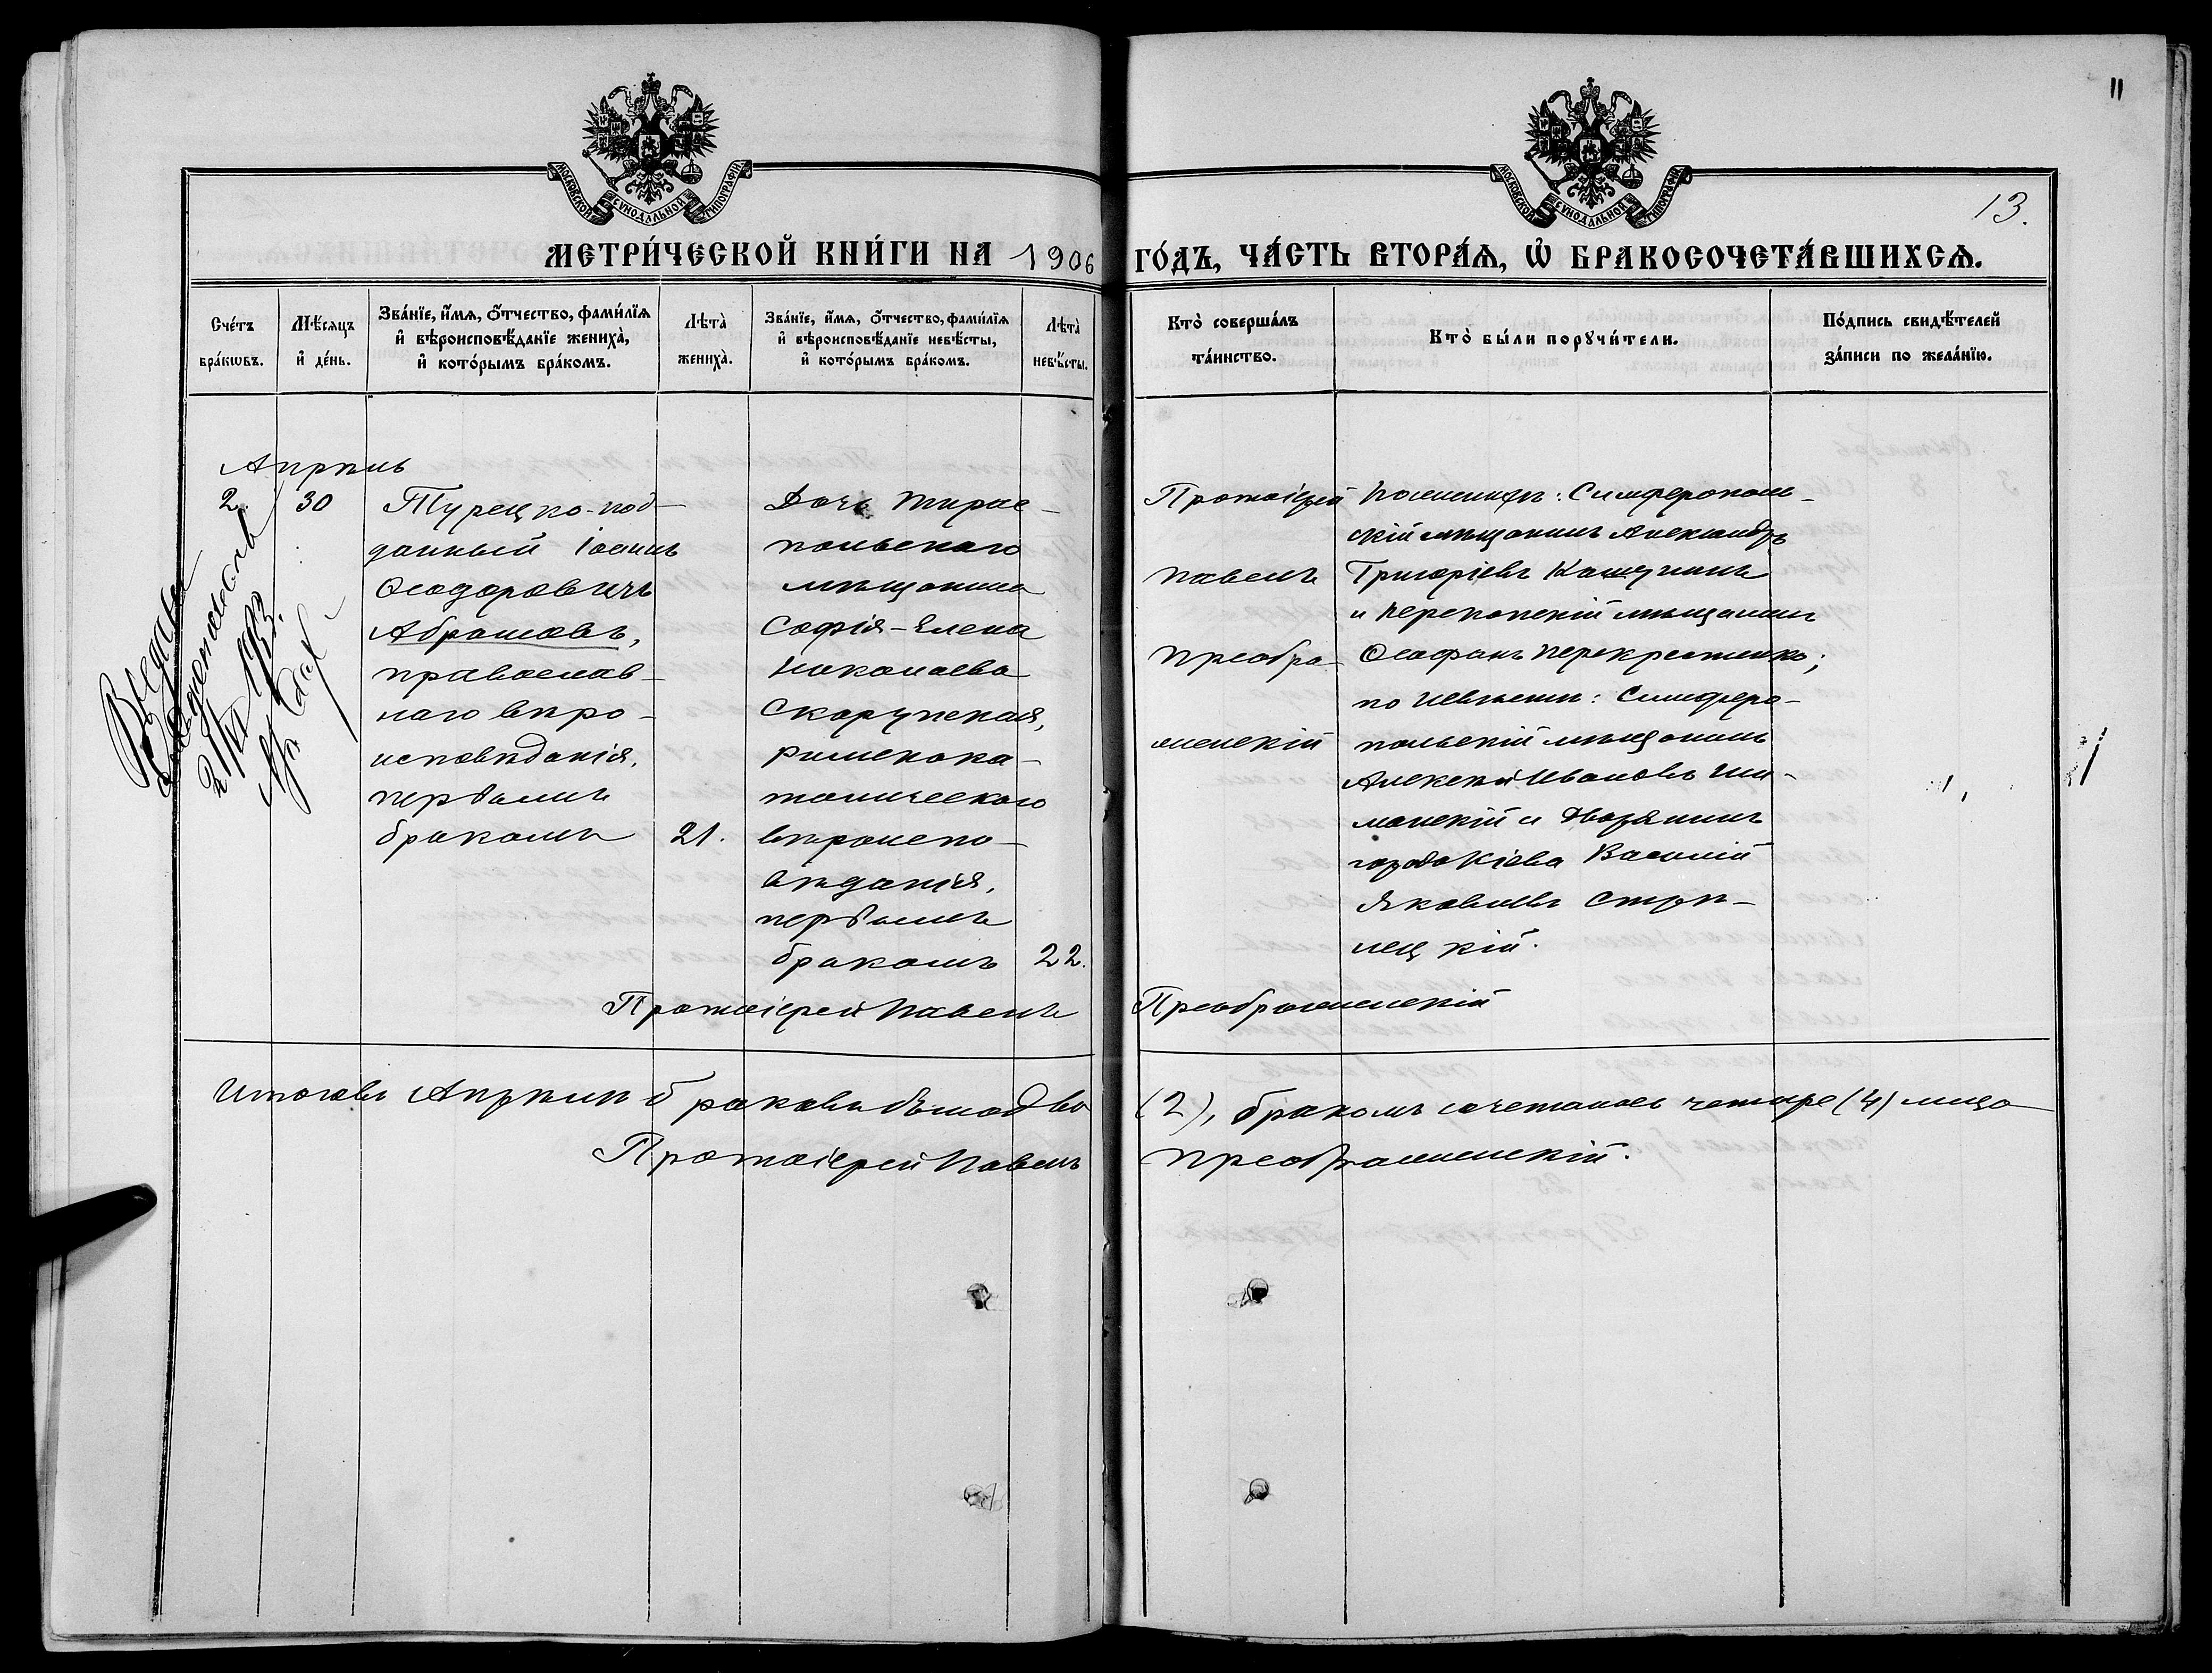 11
13.
МОСКОВСКОЙ СѴНОДАЛЬНОЙ ТИПОГРАФІИ
МОСКОВСКОЙ СѴНОДАЛЬНОЙ ТИПОГРАФІИ
МЕТРИ́ЧЕСКОЙ КНИ́ГИ НА 1906 ГО́ДЪ, ЧА́СТЬ ВТОРА́Ѧ, Ѽ БРАКОСОЧЕТА́ВШИХСѦ.
Сче́тъ
бра́кѡвъ.
Мѣ́сѧцъ
и҆ де́нь.
Зва́нїе, и҆́мѧ, ѻ҆́тчество, фами́лїѧ
и҆ вѣроисповѣ́данїе жениха̀,
и҆ кото́рымъ бра́комъ.
Лѣта̀
жениха̀.
Зва́нїе, и҆́мѧ, ѻ҆́тчество, фами́лїѧ
и҆ вѣроисповѣ́данїе невѣ́сты,
и҆ кото́рымъ бра́комъ.
Лѣта̀
невѣ́сты.
Кто̀ соверша́лъ
та́инство.
Кто̀ бы́ли порꙋчи́тели.
По́дпись свидѣ́телей
за́писи по жела́нїю.
Апрѣль
2. 30
Турецко-под-
данный Іоаннъ
Ѳеодоровичъ
Абрамовъ,
православ-
наго вѣро-
исповѣданія,
первымъ
бракомъ
21.
Дочь Тирас-
польскаго
мѣщанина
Софія-Елена
Николаева
Скарупская,
римско-ка-
толическаго
вѣроиспо-
вѣданія,
первымъ
бракомъ
22.
Протоіерей
Павелъ
Преобра-
женскій
По женихѣ: Симферополь-
скій мѣщанинъ Александръ
Григоріевъ
и Перекопскій мѣщанинъ
Ѳеофанъ Перекрестенко;
по невѣстѣ: Симферо-
польскій мѣщанинъ
Алексѣй Ивановъ Ши-
манскій и дворянинъ
города Кіева Василій
Яковлевъ Стрѣ-
лецкій.
Протоіерей Павелъ Преображенскій
Итого въ Апрѣлѣ браковъ было два (2), бракомъ сочеталось четыре (4) лица
Протоіерей Павелъ Преображенскій.